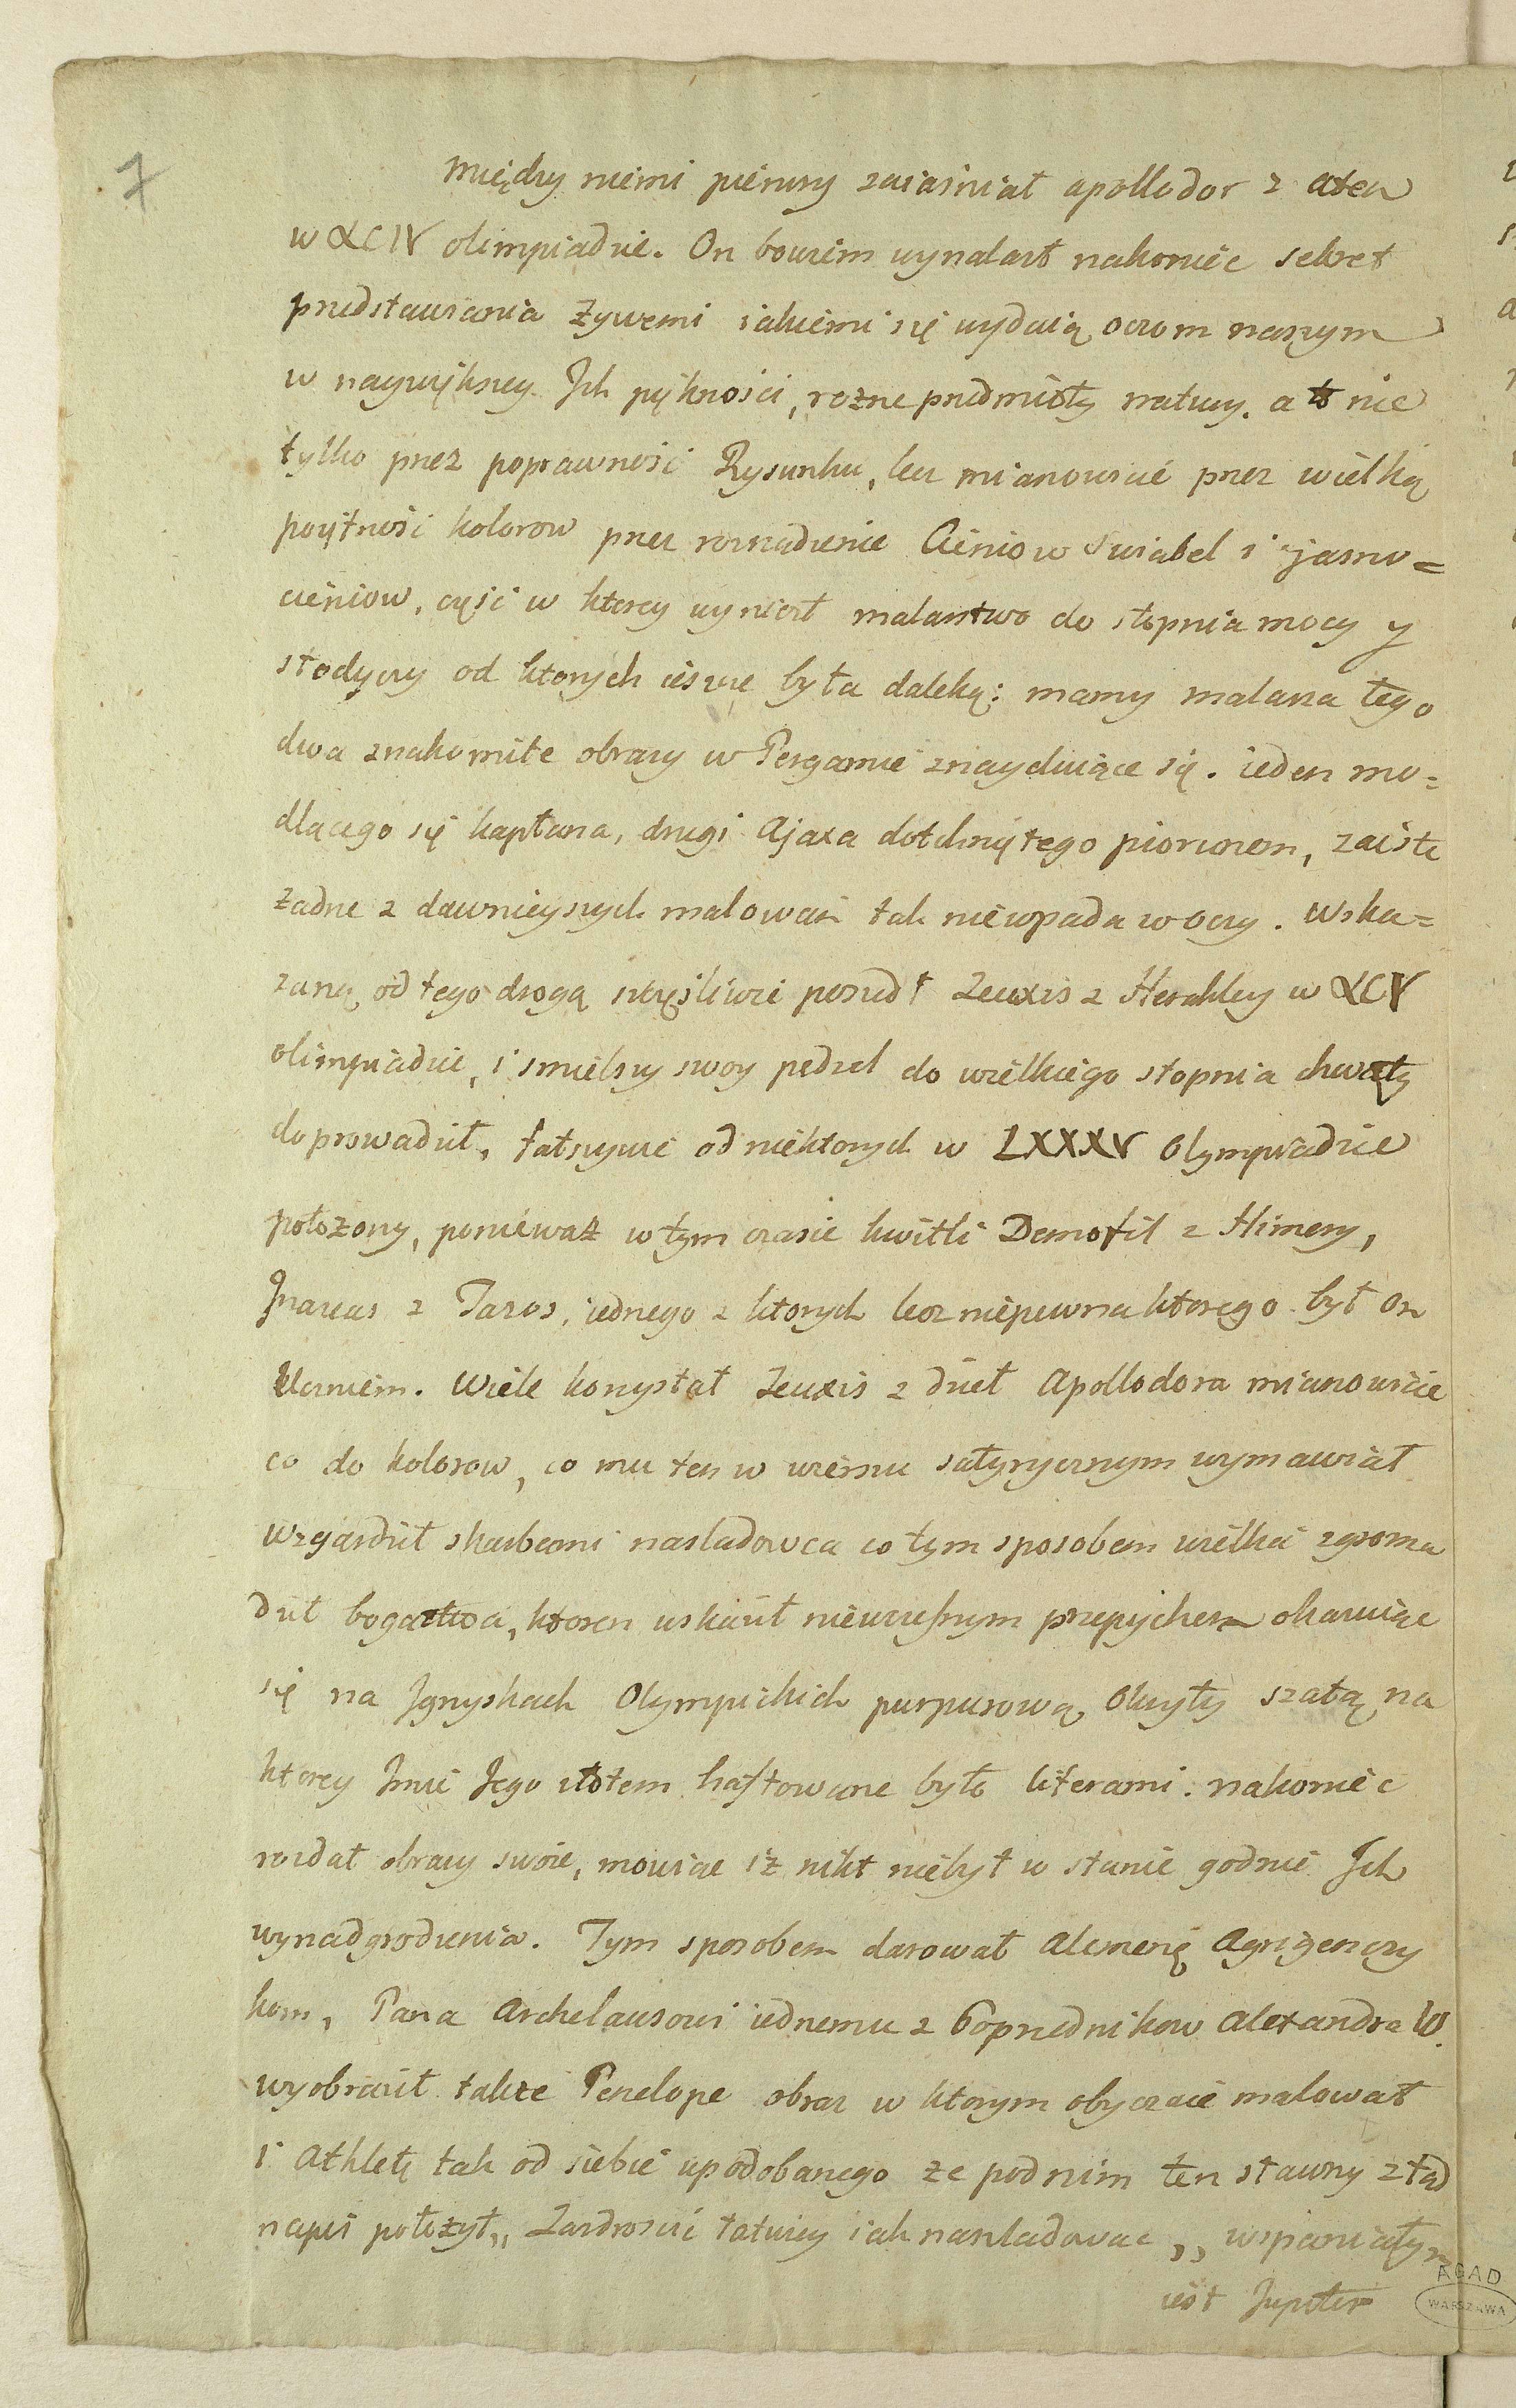 7
między niemi pierwszy zaiaśniał apollodor z aten
w XCIV olimpiadzie. On bowiem wynalazł nakoniec sekret
przedstawiania żywemi iakiemi się wydaią oczom naszym
w naywiększey Ich pękności, rożne przedmioty natury. a to nie
tylko przez poprawność Rysunku, lecz mianowicie przez wielką
poiętność kolorow przez rozrzadzenie Cieniow Swiateł i jasno=
cieniow, częśc w ktorey wyniosł malarstwo do stopnia mocy y
słodyczy od ktorych ieszcze była daleką: mamy malarza tego
dwa znakomite obrazy w Pergamie znayduiące się. ieden mo=
dlącego się kapłana, drugi Ajaxa dotchniętego piorunem, zaiste
żadne z dawnieyszych malowań tak niewpada w oczy. Wska=
zaną od tego drogą szczęśliwie poszedł Zeuxis z Herakley w XCV
olimpiadzie, i smielszy swoy pędzel do wielkiego stopnia chwały
doprowadził, fałszywie od niektorych w LXXXV Olympiadzie
położony, ponieważ w tym czasie kwitli Demofil z Himery,
z Tazos, iednego z ktorych lecz niepewna ktorego był on
Uczniem. Wiele korzystał Zeuxis z dzieł Apollodora mianowicie
co do kolorow, co mu ten w wierszu satyrycznym wymawiał
wzgardził skarbami nasladowca co tym sposobem wielkie zgroma
dził bogactwa, ktoren wsławił niewczesnym przepychem okazuiąc
się na Igryskach Olympickich purpurową okryty szatą na
ktorey Imie Jego złotem haftowane było literami. nakoniec
rozdał obrazy swoie, mowiąc iż nikt niebył w stanie godnie Ich
wynadgrodzenia. Tym sposobem darował alcmenę Agrigenczy
kom, Pana Archelausowi iednemu z Poprzednikow Alexandra W.
wyobraził także Penelope obraz w ktorym obyczaie malował
i Athletę tak od siebie upodobanego że pod nim ten sławny ztąd
napis położył,, Zazdroscić łatwiey iak nasladować ,, wspaniałym
iest Jupiter
AGAD
WARSZAWA